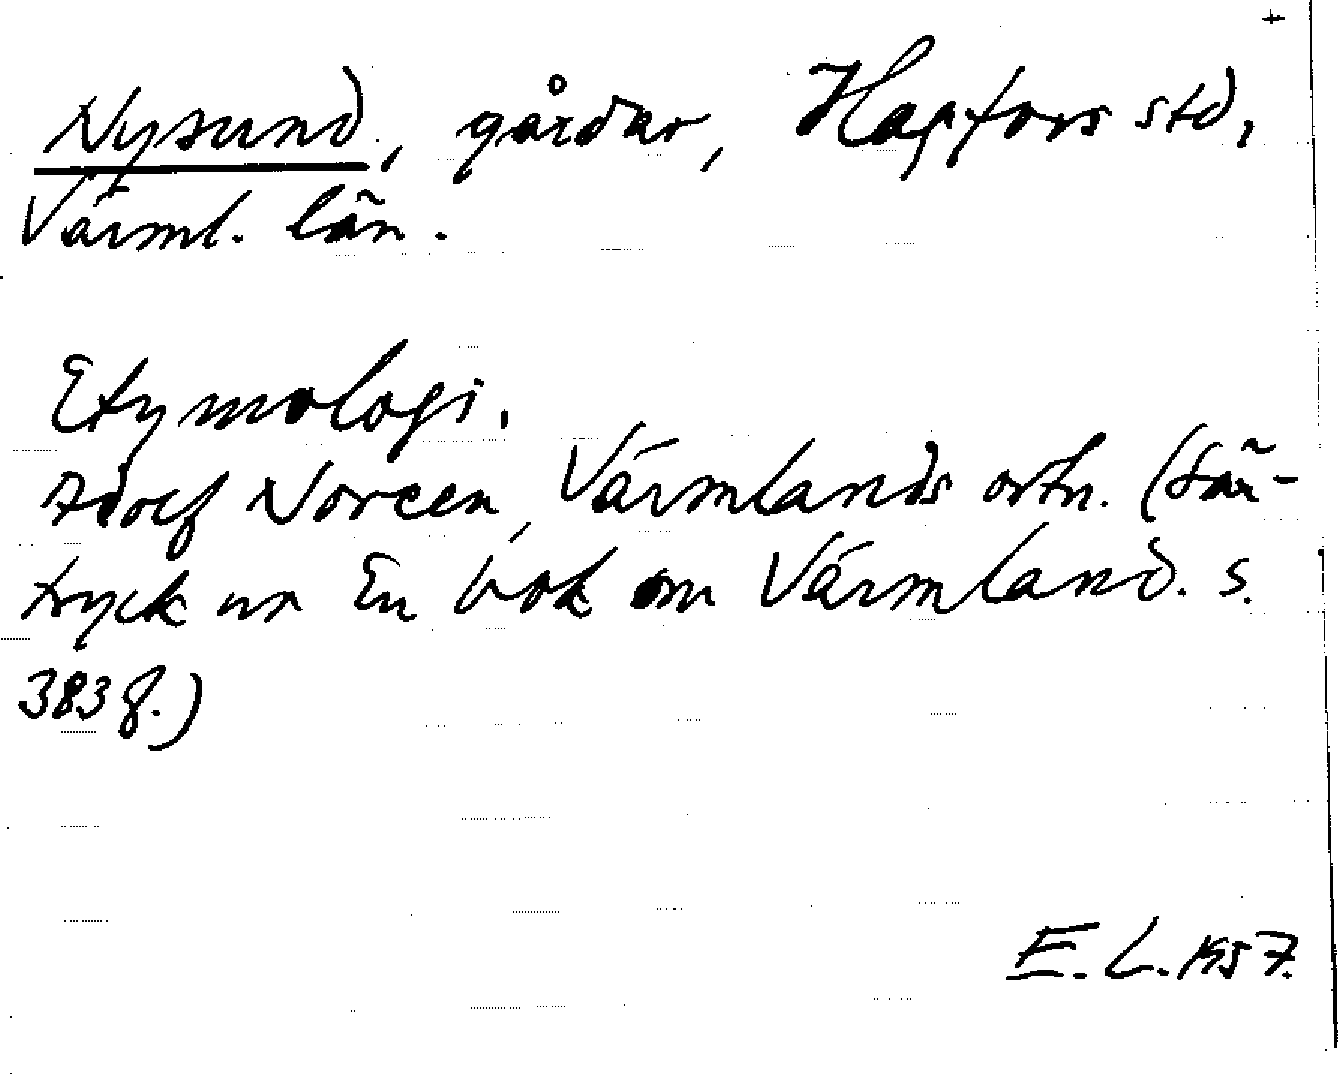 Nysund, gårdar, Hagfors std,
Värml. län.
Etymologi.
Adolf Noreen, Värmlands ortn. (Sär-
tryck ur En bok om Värmland. s.
383 f.)
E. L. 1957.